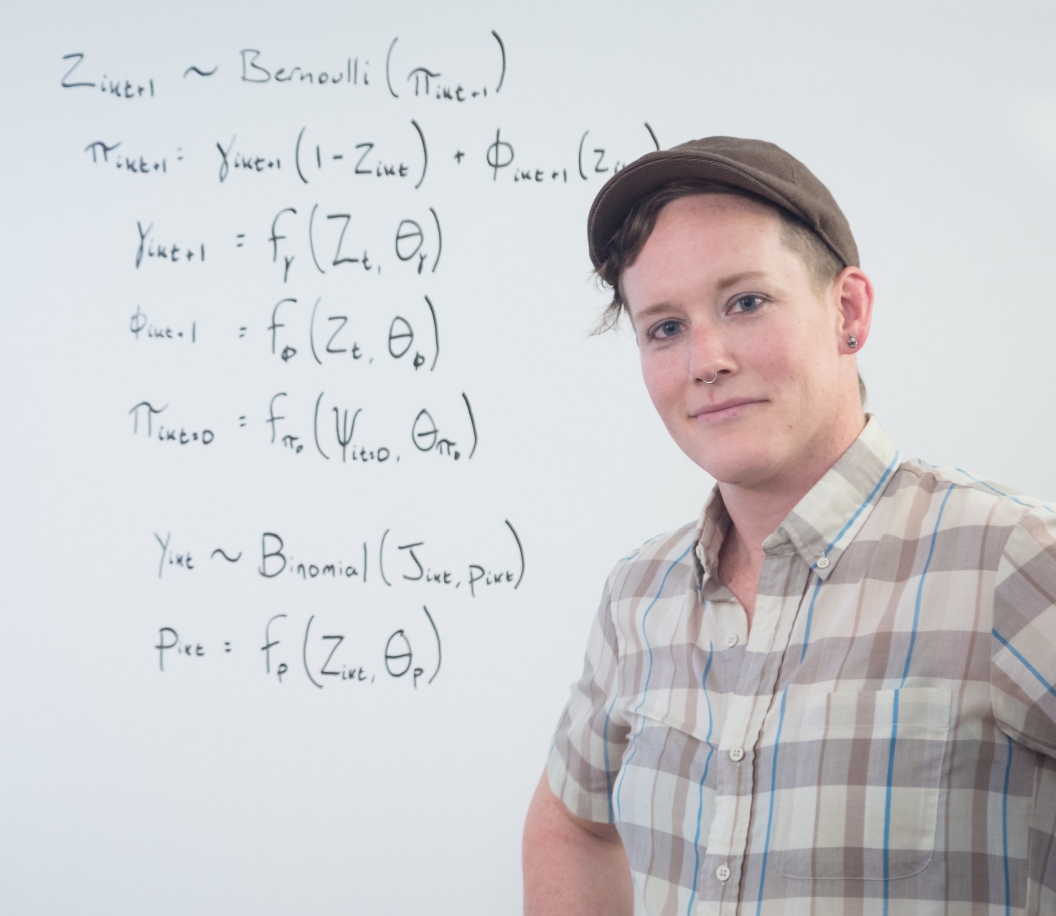 Zikt+1 ~ Bernoulli (πikt+1)
πikt+1 = γikt+1 (1 - Zikt) + ϕikt+1 (zi )
γikt+1 = fγ (Zt, θγ)
ϕikt+1 = fϕ (Zt, θϕ)
πikt=0 = fπ0 (ψit=0, θπ0)
yikt ~ Binomial (Jikt, pikt)
pikt = fp (Zikt, θp)